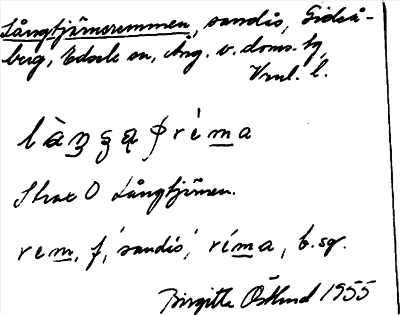 Långtjärnsremmen, sandås, Gideå-
berg, Edsele sn, Ång. v. doms. tg
l.
làŋgąʃréma
Strax O Långtjärnen.
rem, f, 'sandås', réma, b. sg.
Birgitta Östlund 1955